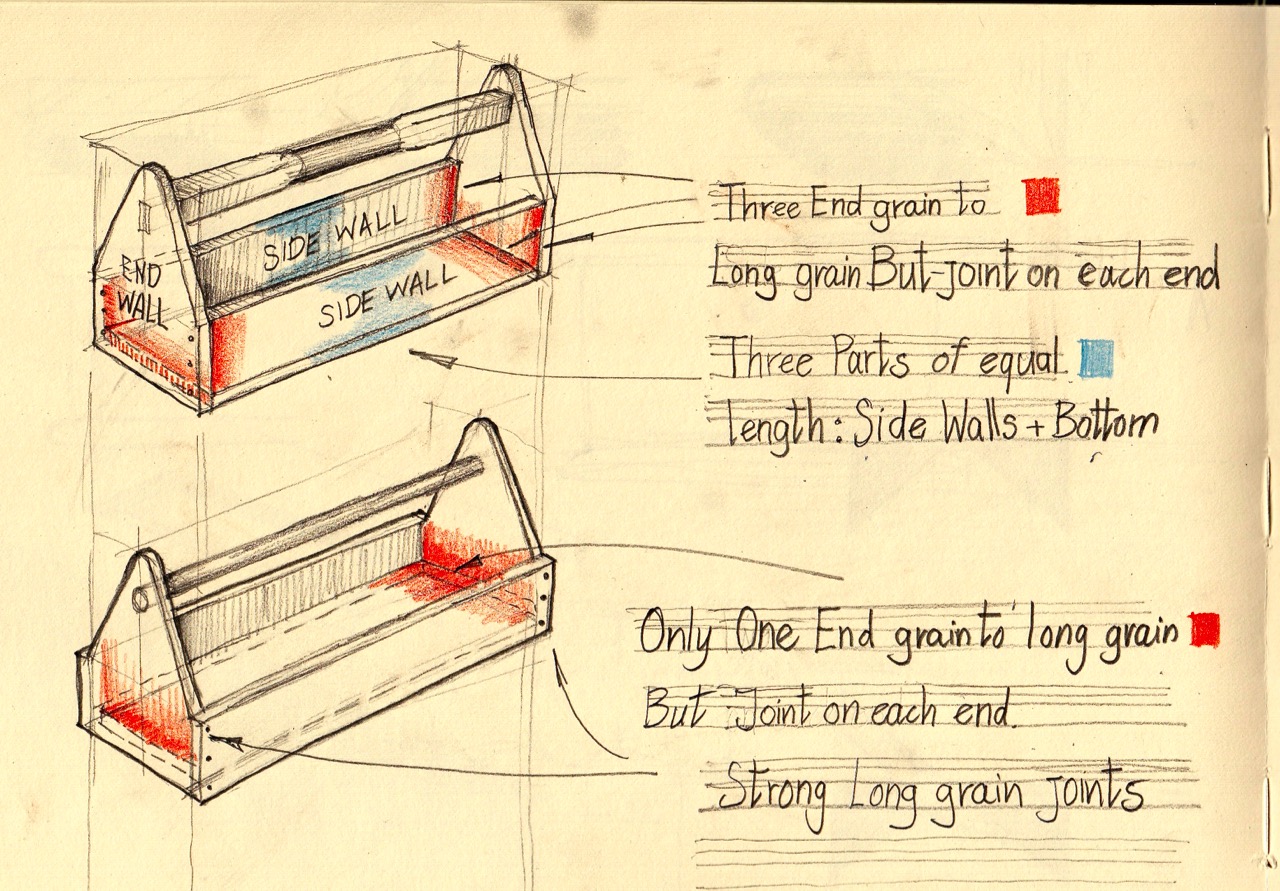 END
WALL
SIDE WALL
SIDE WALL
Three End grain to
Long grain But-joint on each end
Three Parts of equal
length: Side Walls + Bottom
Only One End grain to long grain
But Joint on each end.
Strong Long grain joints